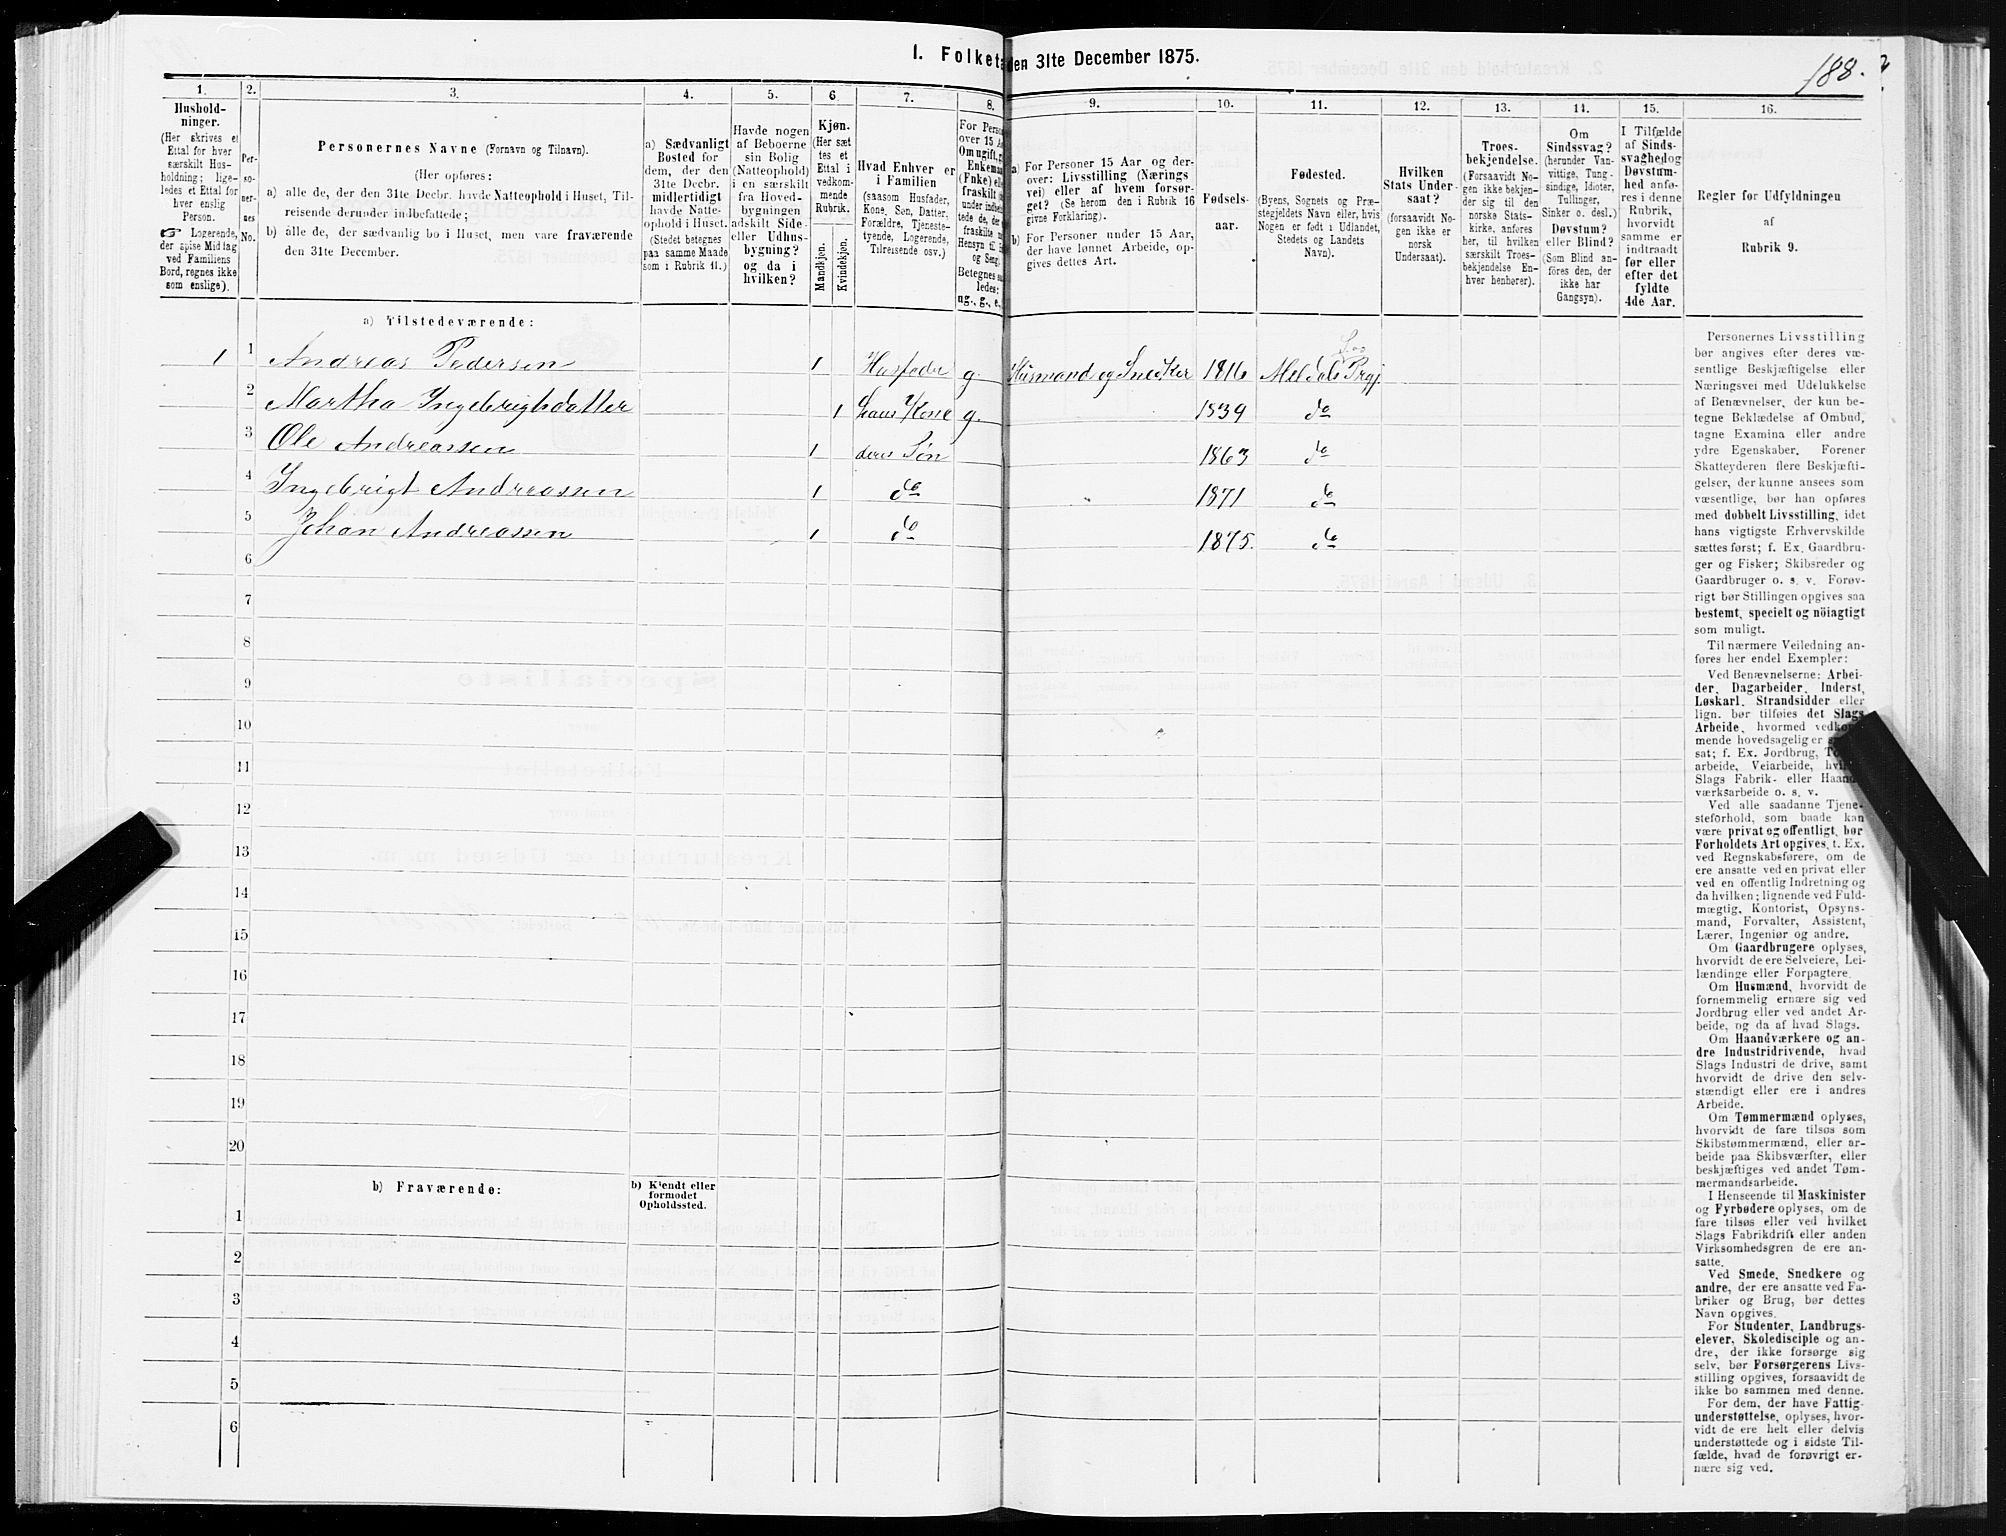 188.
I. Folketa
den 31te December 1875.
1. 2. 3. 4. 5. 6 7. 8. 9. 10. 11. 12. 13. 14. 15. 16.
Hushold-
ninger.
(Her skrives et
Ettal for hver
særskilt Hus-
holdning; lige-
ledes et Ettal for
hver enslig
Person.
☞ Logerende,
der spise Middag
ved Familiens
Bord, regnes ikke
som enslige).
Per-
so-
ner-
nes
No.
Personernes Navne (Fornavn og Tilnavn).
(Her opføres:
a) alle de, der den 31te Decbr. havde Natteophold i Huset, Til-
reisende derunder indbefattede;
b) alle de, der sædvanlig bo i Huset, men vare fraværende
den 31te December.
a) Sædvanligt
Bosted for
dem, der den
31te Decbr.
midlertidigt
havde Natte-
ophold i Huset.
(Stedet betegnes
paa samme Maade
som i Rubrik 11.)
Havde nogen
af Beboerne
sin Bolig
(Natteophold)
i en særskilt
fra Hoved-
bygningen
adskilt Side-
eller Udhus-
bygning?
og da i
hvilken?
Kjøn.
(Her sæt
tes et
Ettal i
vedkom-
mende
Rubrik.
Mandkjøn.
Kvindekjøn.
Hvad Enhver er
i Familien
(saasom Husfader,
Kone, Søn, Datter,
Forældre, Tjeneste-
tyende, Logerende,
Tilreisende osv.)
For Perso
over 15 A
Om ugift, g
Enkeman
(Enke) elle
fraskilt
under indb
tede de, der
fraskilte
Hensyn til
og Seng.
Betegnes sa
ledes:
ug., g., e.,
a) For Personer 15 Aar og der-
over: Livsstilling (Nærings
vei) eller af hvem forsør-
get? (Se herom den i Rubrik 16
givne Forklaring).
b) For Personer under 15 Aar,
der have lønnet Arbeide, op-
gives dettes Art.
Fødsels-
aar.
Fødested.
(Byens, Sognets og Præ-
stegjeldets Navn eller, hvis
Nogen er født i Udlandet,
Stedets og Landets
Navn).
Hvilken
Stats Under-
saat?
(forsaavidt No-
gen ikke er
norsk
Undersaat).
Troes-
bekjendelse.
(Forsaavidt No-
gen ikke bekjen-
der sig til den
norske Stats-
kirke, anføres
her, til hvilken
særskilt Troes-
bekjendelse En-
hver henhører).
Om
Sindssvag?
(herunder Van-
vittige, Tung-
sindige, Idioter,
Tullinger,
Sinker o. desl.)
Døvstum?
eller Blind?
(Som Blind an-
føres den, der
ikke har
Gangsyn).
I Tilfælde
af Sinds-
svaghed og
Døvstum-
hed anfø-
res i denne
Rubrik,
hvorvidt
samme er
indtraadt
før eller
efter det
fyldte
4de Aar.
Regler for Udfyldningen
af
Rubrik 9.
a) Tilstedeværende:
1 1 Andreas Pedersen 1 Husfader g. Husmand og Snedker 1816 Meldals Prgj.
2 Martha Ingebrigtsdatter 1 hans Kone g. 1839 do
3 Ole Andreassen 1 deres Søn 1863 do
4 Ingebrigt Andreassen 1 do 1871 do
5 Johan Andreassen 1 do 1875. do
6
7
8
9
10
11
12
13
14
15
16
17
18
19
20
b) Fraværende:
b) Kjendt eller
formodet
Opholdssted.
1
2
3
4
5
6
Personernes Livsstilling
bør angives efter deres væ-
sentlige Beskjæftigelse eller
Næringsvei med Udelukkelse
af Benævnelser, der kun be-
tegne Beklædelse af Ombud,
tagne Examina eller andre
ydre Egenskaber. Forener
Skatteyderen flere Beskjæfti-
gelser, der kunne ansees som
væsentlige, bør han opføres
med dobbelt Livsstilling, idet
hans vigtigste Erhvervskilde
sættes først; f. Ex. Gaardbru-
ger og Fisker; Skibsreder og
Gaardbruger o. s. v. Forøv-
rigt bør Stillingen opgives saa
bestemt, specielt og nöiagtigt
som muligt.
Til nærmere Veiledning an-
føres her endel Exempler:
Ved Benævnelserne: Arbei-
der, Dagarbeider, Inderst,
Løskarl, Strandsidder eller
lign. bør tilføies det Slags
Arbeide, hvormed vedkom-
mende hovedsagelig er sys-
sat; f. Ex. Jordbrug, To
arbeide, Veiarbeide, hvi
Slags Fabrik- eller Haand-
værksarbeide o. s. v.
Ved alle saadanne Tjene-
steforhold, som baade kan
være privat og offentligt, bør
Forholdets Art opgives, t. Ex.
ved Regnskabsførere, om de
ere ansatte ved en privat eller
ved en offentlig Indretning og
da hvilken; lignende ved Fuld-
mægtig, Kontorist, Opsyns-
mand, Forvalter, Assistent,
Lærer, Ingeniør og andre.
Om Gaardbrugere oplyses,
hvorvidt de ere Selveiere, Lei-
lændinge eller Forpagtere.
Om Husmænd, hvorvidt de
fornemmelig ernære sig ved
Jordbrug eller ved andet Ar-
beide, og da af hvad Slags.
Om Haandværkere og an-
dre Industridrivende, hvad
Slags Industri de drive, samt
hvorvidt de drive den selv-
stændigt eller ere i andres
Arbeide.
Om Tømmermænd oplyses,
hvorvidt de fare tilsøs som
Skibstømmermænd, eller ar-
beide paa Skibsværfter, eller
beskjæftiges ved andet Tøm-
mermandsarbeide.
I Henseende til Maskinister
og Fyrbødere oplyses, om de
fare tilsøs eller ved hvilket
Slags Fabrikdrift eller anden
Virksomhedsgren de ere an-
satte.
Ved Smede, Snedkere og
andre, der ere ansatte ved Fa-
briker og Brug, bør dettes
Navn opgives.
For Studenter, Landbrugs-
elever, Skoledisciple og an-
dre, der ikke forsørge sig
selv, bør Forsørgerens Livs-
stilling opgives, forsaavidt de
ikke bo sammen med denne.
For dem, der have Fattig-
understøttelse, oplyses, hvor-
vidt de ere helt eller delvis
understøttede og i sidste Til-
fælde, hvad de forøvrigt er-
nære sig ved.